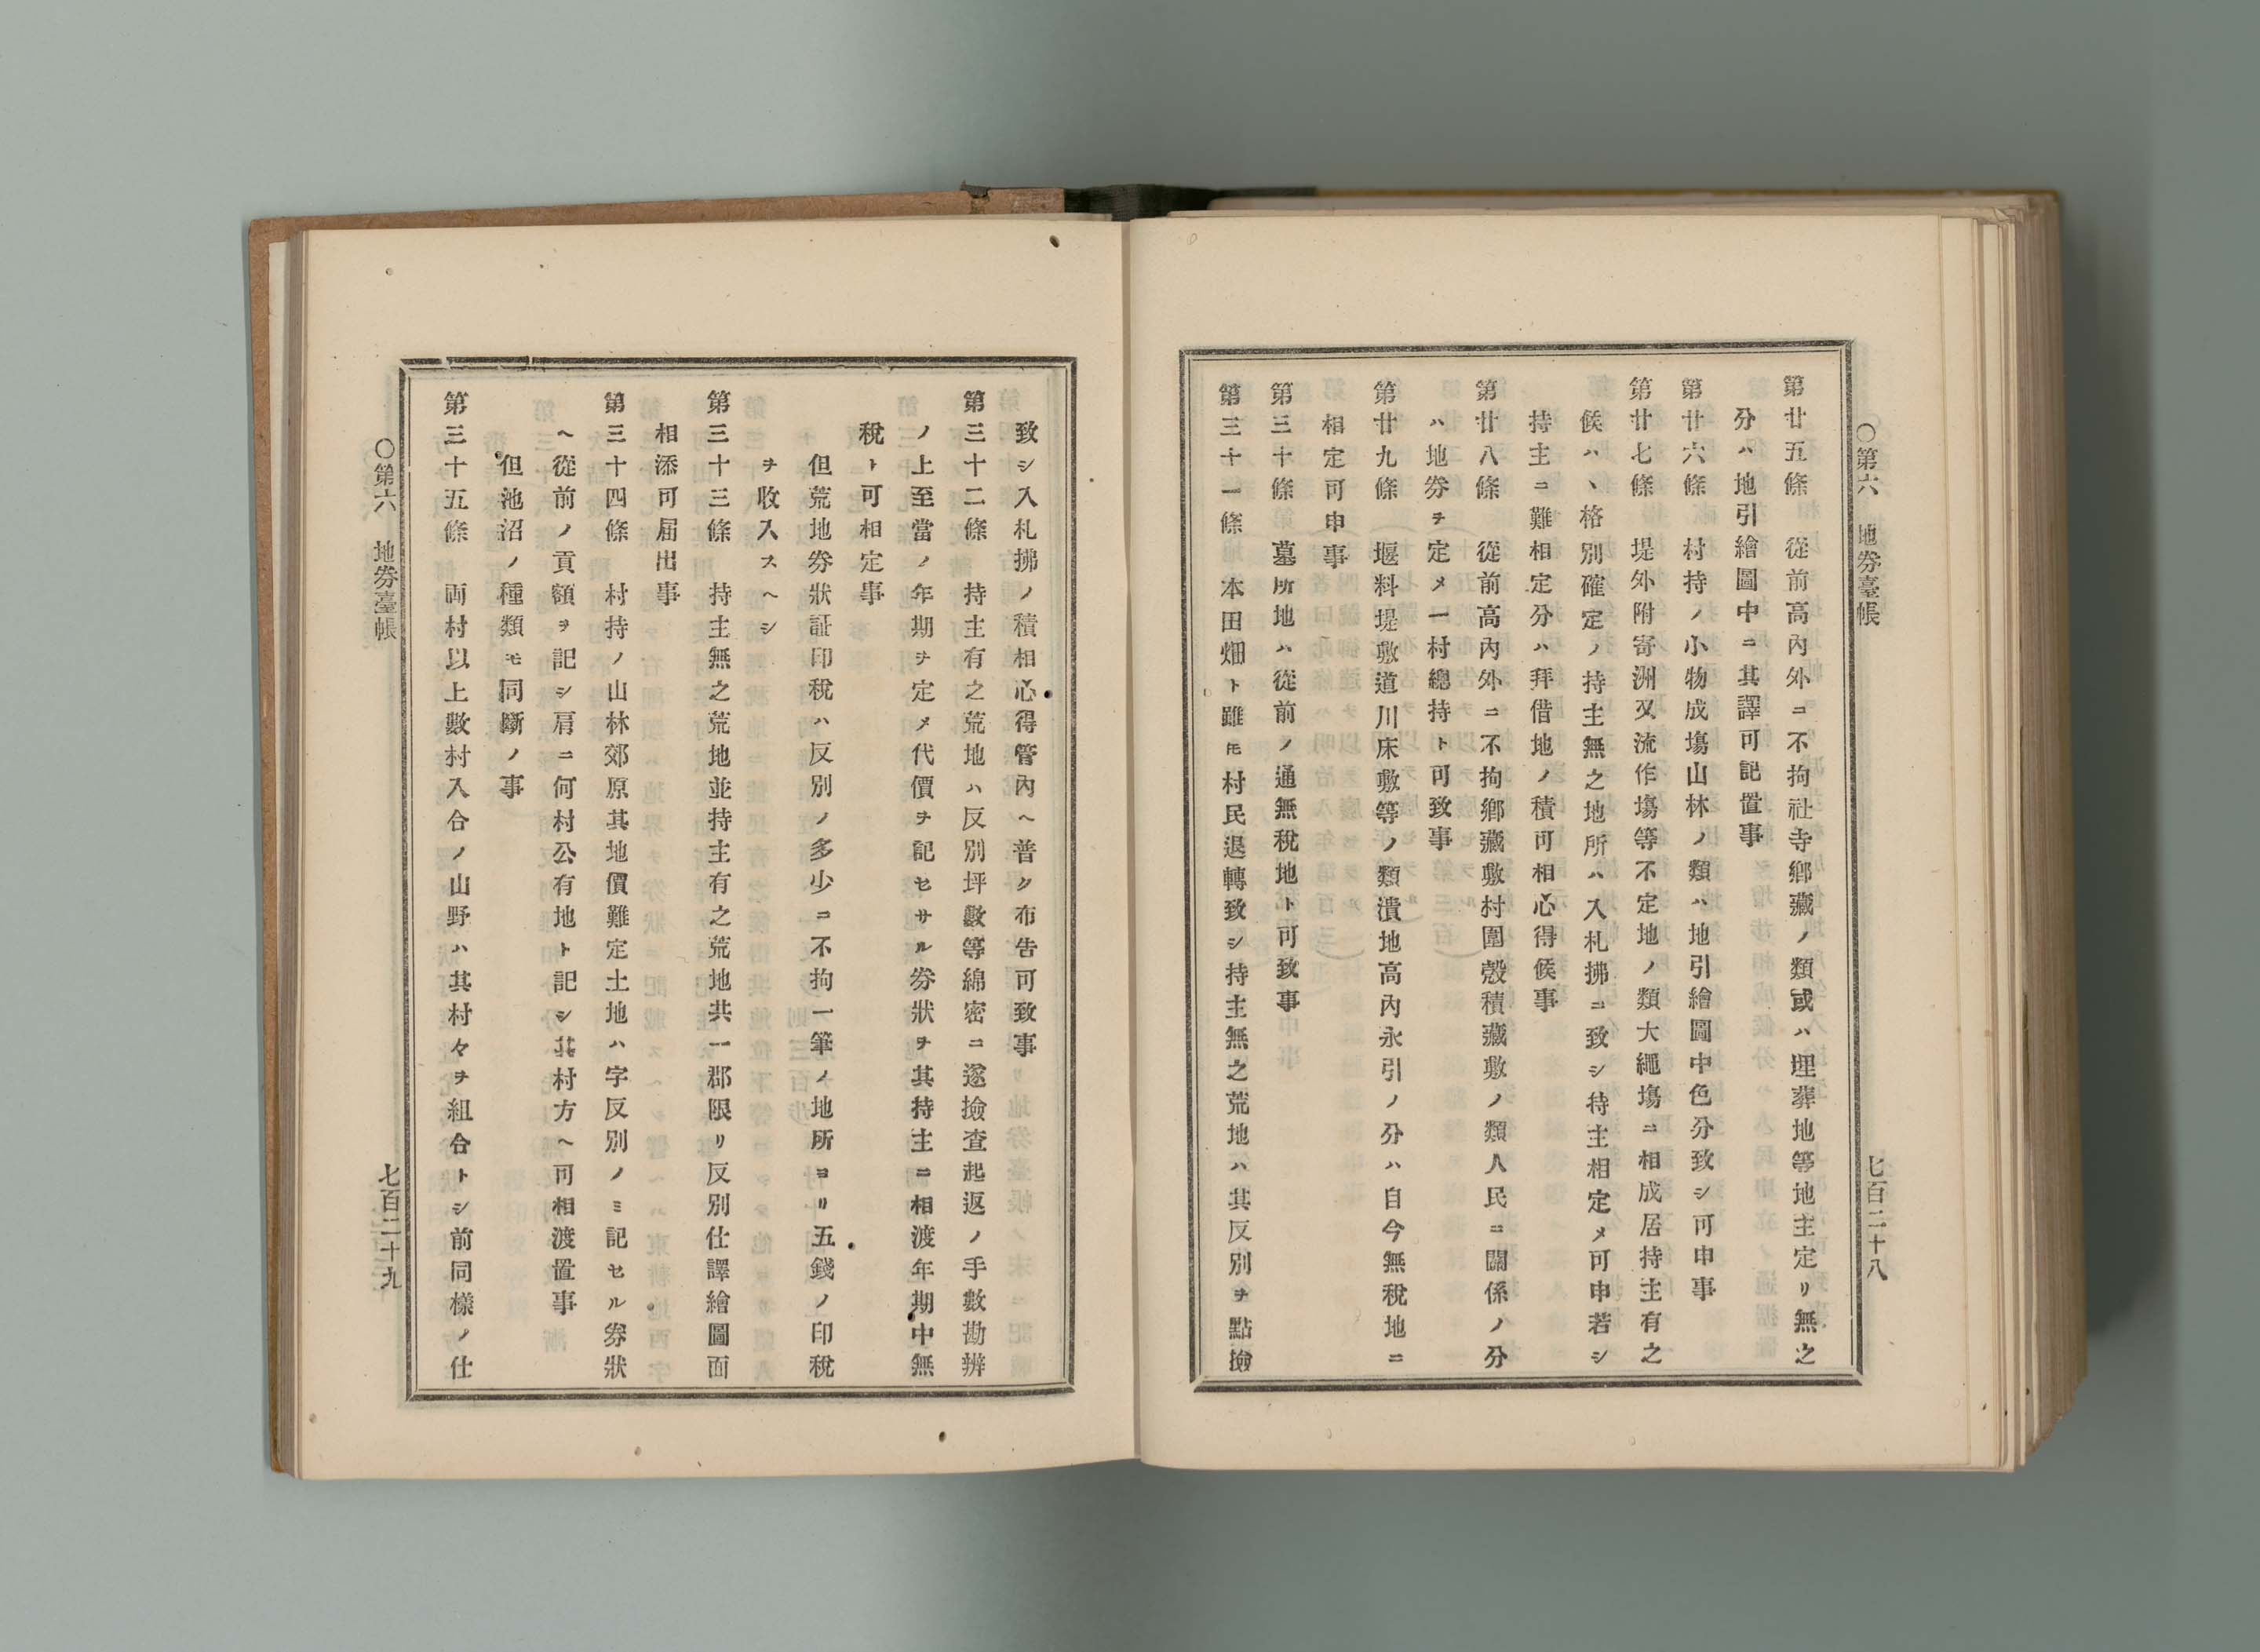 〇第六　地券臺帳　七百二十八
第廿五條　從前高內外ニ不拘社寺鄕藏ノ類或ハ埋葬地等地主定リ無之
分ハ地引繪圖中ニ其譯可記置事
第廿六條　村持ノ小物成塲山林ノ類ハ地引繪圖中色分致シ可申事
第廿七條　堤外附寄洲又流作塲等不定地ノ類大繩塲ニ相成居持主有之
候ハヽ格別確定ノ持主無之地所ハ入札拂ニ致シ持主相定メ可申若シ
持主ニ難相定分ハ拜借地ノ積可相心得候事
第廿八條　從前高內外ニ不拘鄕藏敷村圍穀積藏敷ノ類人民ニ關係ノ分
ハ地券ヲ定メ一村總持ト可致事
第廿九條　堰料堤敷道川床敷等ノ類潰地高內永引ノ分ハ自今無稅地ニ
相定可申事
第三十條　墓所地ハ從前ノ通無稅地ト可致事
第三十一條　本田畑ト雖モ村民退轉致シ持主無之荒地ハ其反別ヲ點撿
致シ入札拂ノ積相心得管內ヘ普ク布告可致事
第三十二條　持主有之荒地ハ反別坪數等綿密ニ遂撿查起返ノ手數勘辨
ノ上至當ノ年期ヲ定メ代價ヲ記セサル券狀ヲ其持主ニ相渡年期中無
稅ト可相定事
但荒地券狀証印稅ハ反別ノ多少ニ不拘一筆ノ地所ヨリ五錢ノ印稅
ヲ收入スヘシ
第三十三條　持主無之荒地並持主有之荒地共一郡限リ反別仕譯繪圖面
相添可届出事
第三十四條　村持ノ山林郊原其地價難定土地ハ字反別ノミ記セル券狀
ヘ從前ノ貢額ヲ記シ肩ニ何村公有地ト記シ其村方ヘ可相渡置事
但池沼ノ種類モ同斷ノ事
第三十五條　両村以上數村入合ノ山野ハ其村々ヲ組合トシ前同樣ノ仕
〇第六　地券臺帳　七百二十九